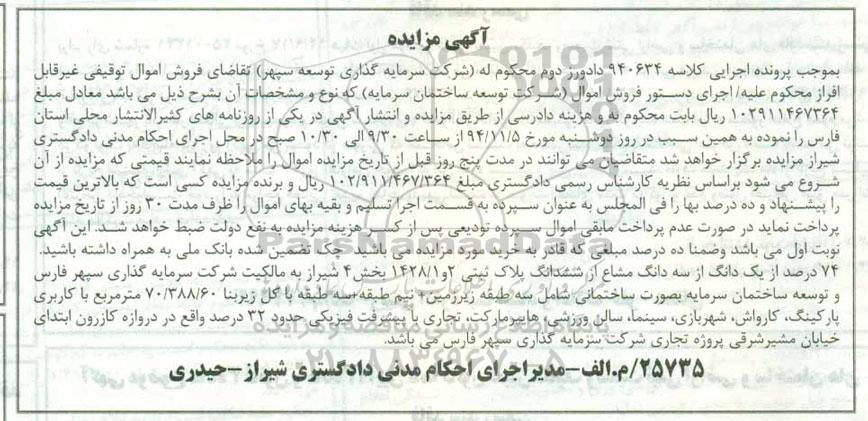 آگهی مزایده
بموجب پرونده اجرایی کلاسه ۹۴۰۶۳۴ دادورز دوم محکوم له (شرکت سرمایه گذاری توسعه سپهر) تقاضای فروش اموال توقیفی غیرقابل
افراز محکوم علیه/ اجرای دستور فروش اموال (شرکت توسعه ساختمان سرمایه) که نوع و مشخصات آن بشرح ذیل می باشد معادل مبلغ
۱۰۲۹۱۱۴۶۷۳۶۴ ریال بابت محکوم به و هزینه دادرسی از طریق مزایده و انتشار آگهی در یکی از روزنامه های کثیرالانتشار محلی استان
فارس را نموده به همین سبب در روز دوشنبه مورخ ۹۴/۱۱/۵ از ساعت ۹/۳۰ الی ۱۰/۳۰ صبح در محل اجرای احکام مدنی دادگستری
شیراز مزایده برگزار خواهد شد متقاضیان می توانند در مدت پنج روز قبل از تاریخ مزایده اموال را ملاحظه نمایند قیمتی که مزایده از آن
شروع می شود براساس نظریه کارشناس رسمی دادگستری مبلغ ۱۰۲/۹۱۱/۴۶۷/۳۶۴ ریال و برنده مزایده کسی است که بالاترین قیمت
را پیشنهاد و ده درصد بها را فی المجلس به عنوان سپرده به قسمت اجرا تسلیم و بقیه بهای اموال را ظرف مدت ۳۰ روز از تاریخ مزایده
پرداخت نماید در صورت عدم پرداخت مابقی اموال سپرده تودیعی پس از کسر هزینه مزایده به نفع دولت ضبط خواهد شد. این آگهی
نوبت اول می باشد وضمنا ده درصد مبلغی که قادر به خرید مورد مزایده می باشید چک تضمین شده بانک ملی به همراه داشته باشید.
۷۴ درصد از یک دانگ از سه دانگ مشاع از ششدانگ پلاک ثبتی ۲و۱۴۲۸/۱ بخش ۴ شیراز به مالکیت شرکت سرمایه گذاری سپهر فارس
و توسعه ساختمان سرمایه بصورت ساختمانی شامل سه طبقه زیرزمین+ نیم طبقه+سه طبقه با کل زیربنا ۷۰/۳۸۸/۶۰ مترمربع با کاربری
پارکینگ، کارواش، شهربازی، سینما، سالن ورزشی، هایپرمارکت، تجاری با پیشرفت فیزیکی حدود ۳۲ درصد واقع در دروازه کازرون ابتدای
خیابان مشیرشرقی پروژه تجاری شرکت سرمایه گذاری سپهر فارس می باشد.
۲۵۷۳۵/م.الف-مدیراجرای احکام مدنی دادگستری شیراز-حیدری
ParsNamadData